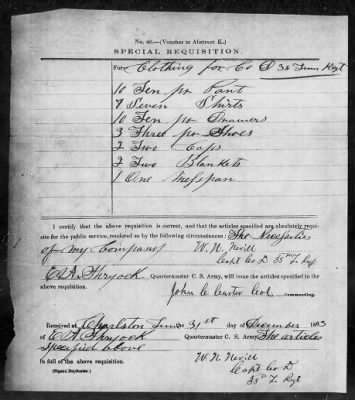 No. 40.—(Voucher to Abstract K.)
SPECIAL REQUISITION.
For Clothing for Co D 38 Tenn Regt
10 Ten pr Pant
7 Seven Shirts
10 Ten pr Drawers
3 Three pr Shoes
2 Two Caps
2 Two Blankets
1 One Messpan
I certify that the above requisition is correct, and that the articles specified are absolutely requi-
site for the public service, rendered so by the following circumstances: The Necessities
of my Company W. N. Nevill
Capt Co D 38 T. Reg
Quartermaster C. S. Army, will issue the articles specified in the
above requisition.
John C Carter Col. Commanding.
Received at Charleston Tenn 31st day of December 1863
of Quartermaster C. S. Army, The articles
specified above
In full of the above requisition. W. N. Nevill
(Signed Duplicates.) Capt Co D
38 T. Regt